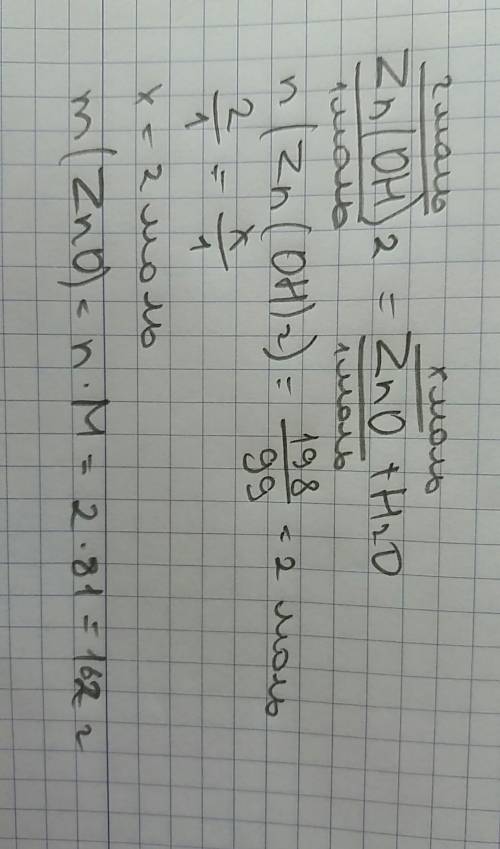 2 моль x моль
Zn(OH)2 = ZnO + H2O
1 моль 1 моль
n(Zn(OH)2) = 198/99 = 2 моль
2/1 = x/1
x = 2 моль
m(ZnO) = n · M = 2 · 81 = 162 г